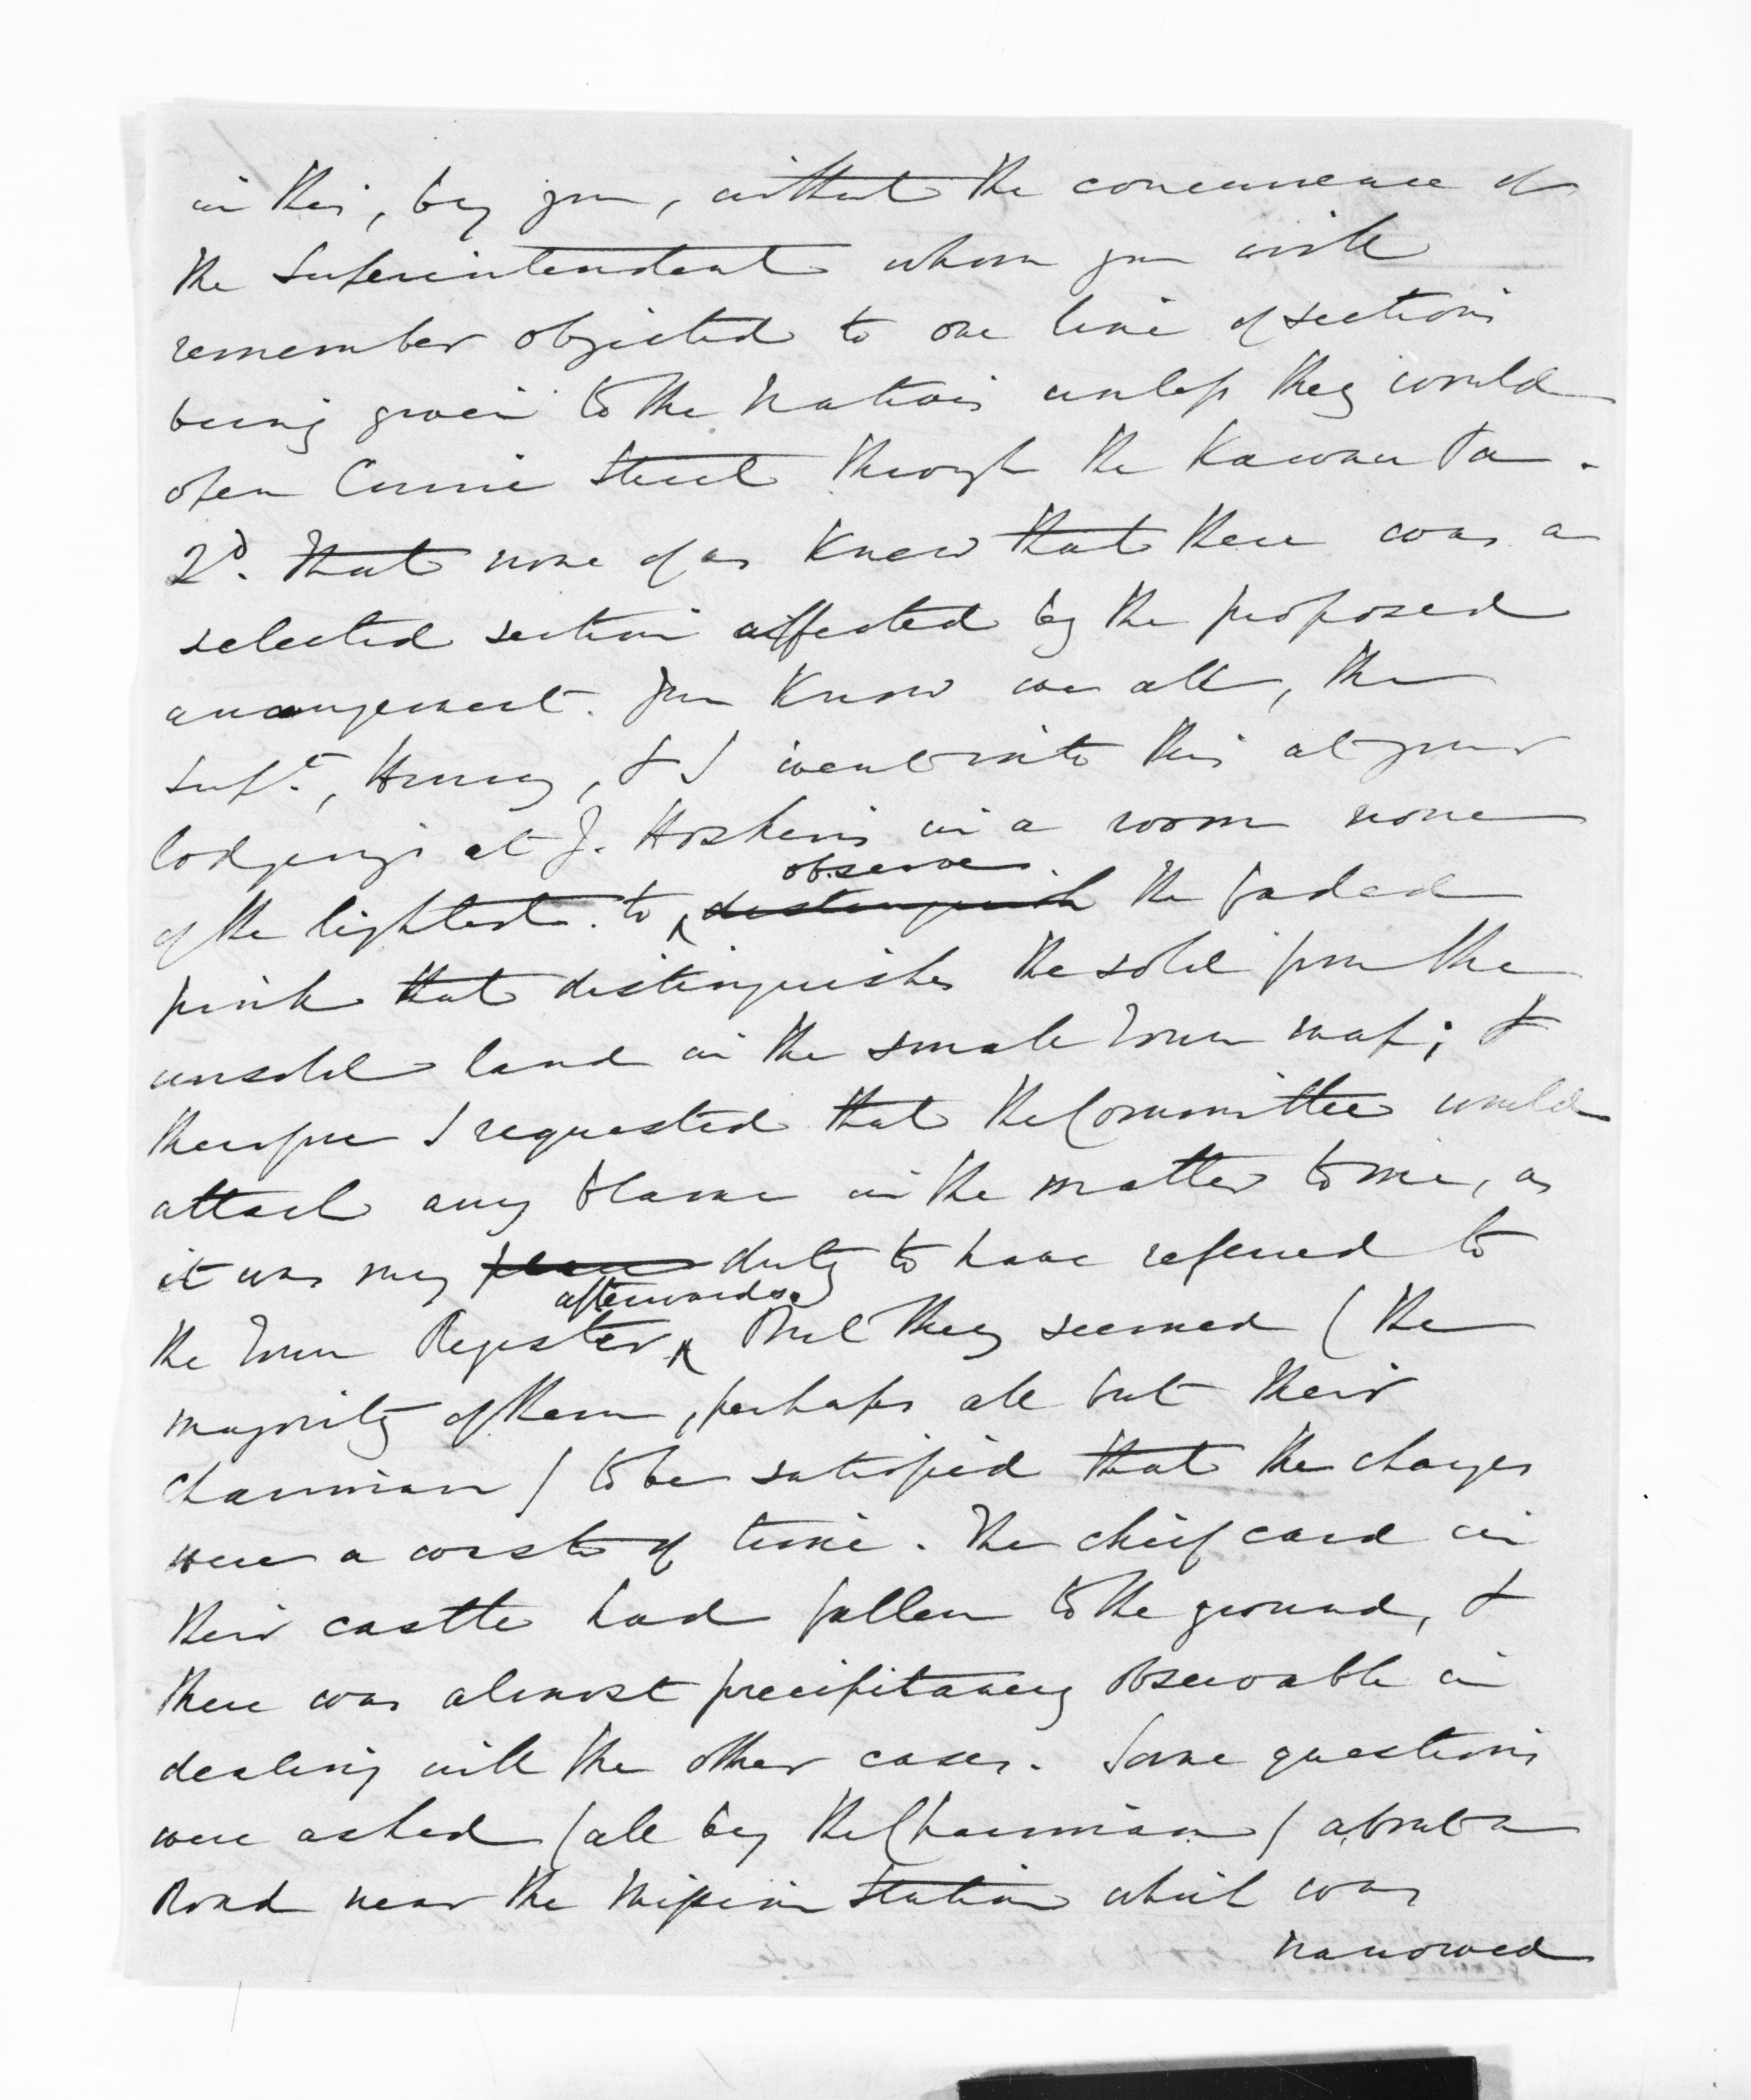 in this, by you, without the concurrence of
the Superintendent whom you will
remember objected to one line of sections
being given to the Natives unless they would
open Currie Street through the Kawau Pa.
2d. That none of us knew that there was a
selected section affected by the proposed
arrangement. You know we all, the
Supt., Henry, & I went into this at your
lodgings at J. Hoskin's in a room none
of the lightest to observe distinguish the faded
pink that distinguishes the sold from the
unsold land in the small Town map; &
therefore I requested that the Committee would
attach any blame in the matter to me, as
it was my duty to have referred to
the Town Register afterwards. But they seemed (the
majority of them, perhaps all but their
chairman) to be satisfied that the charges
were a waste of time. The chief card in
their castle had fallen to the ground, &
there was almost precipitancy observable in
dealing with the other cases. Some questions
were asked (all by the Chairman) about a
Road near the Mission Station which was
narrowed